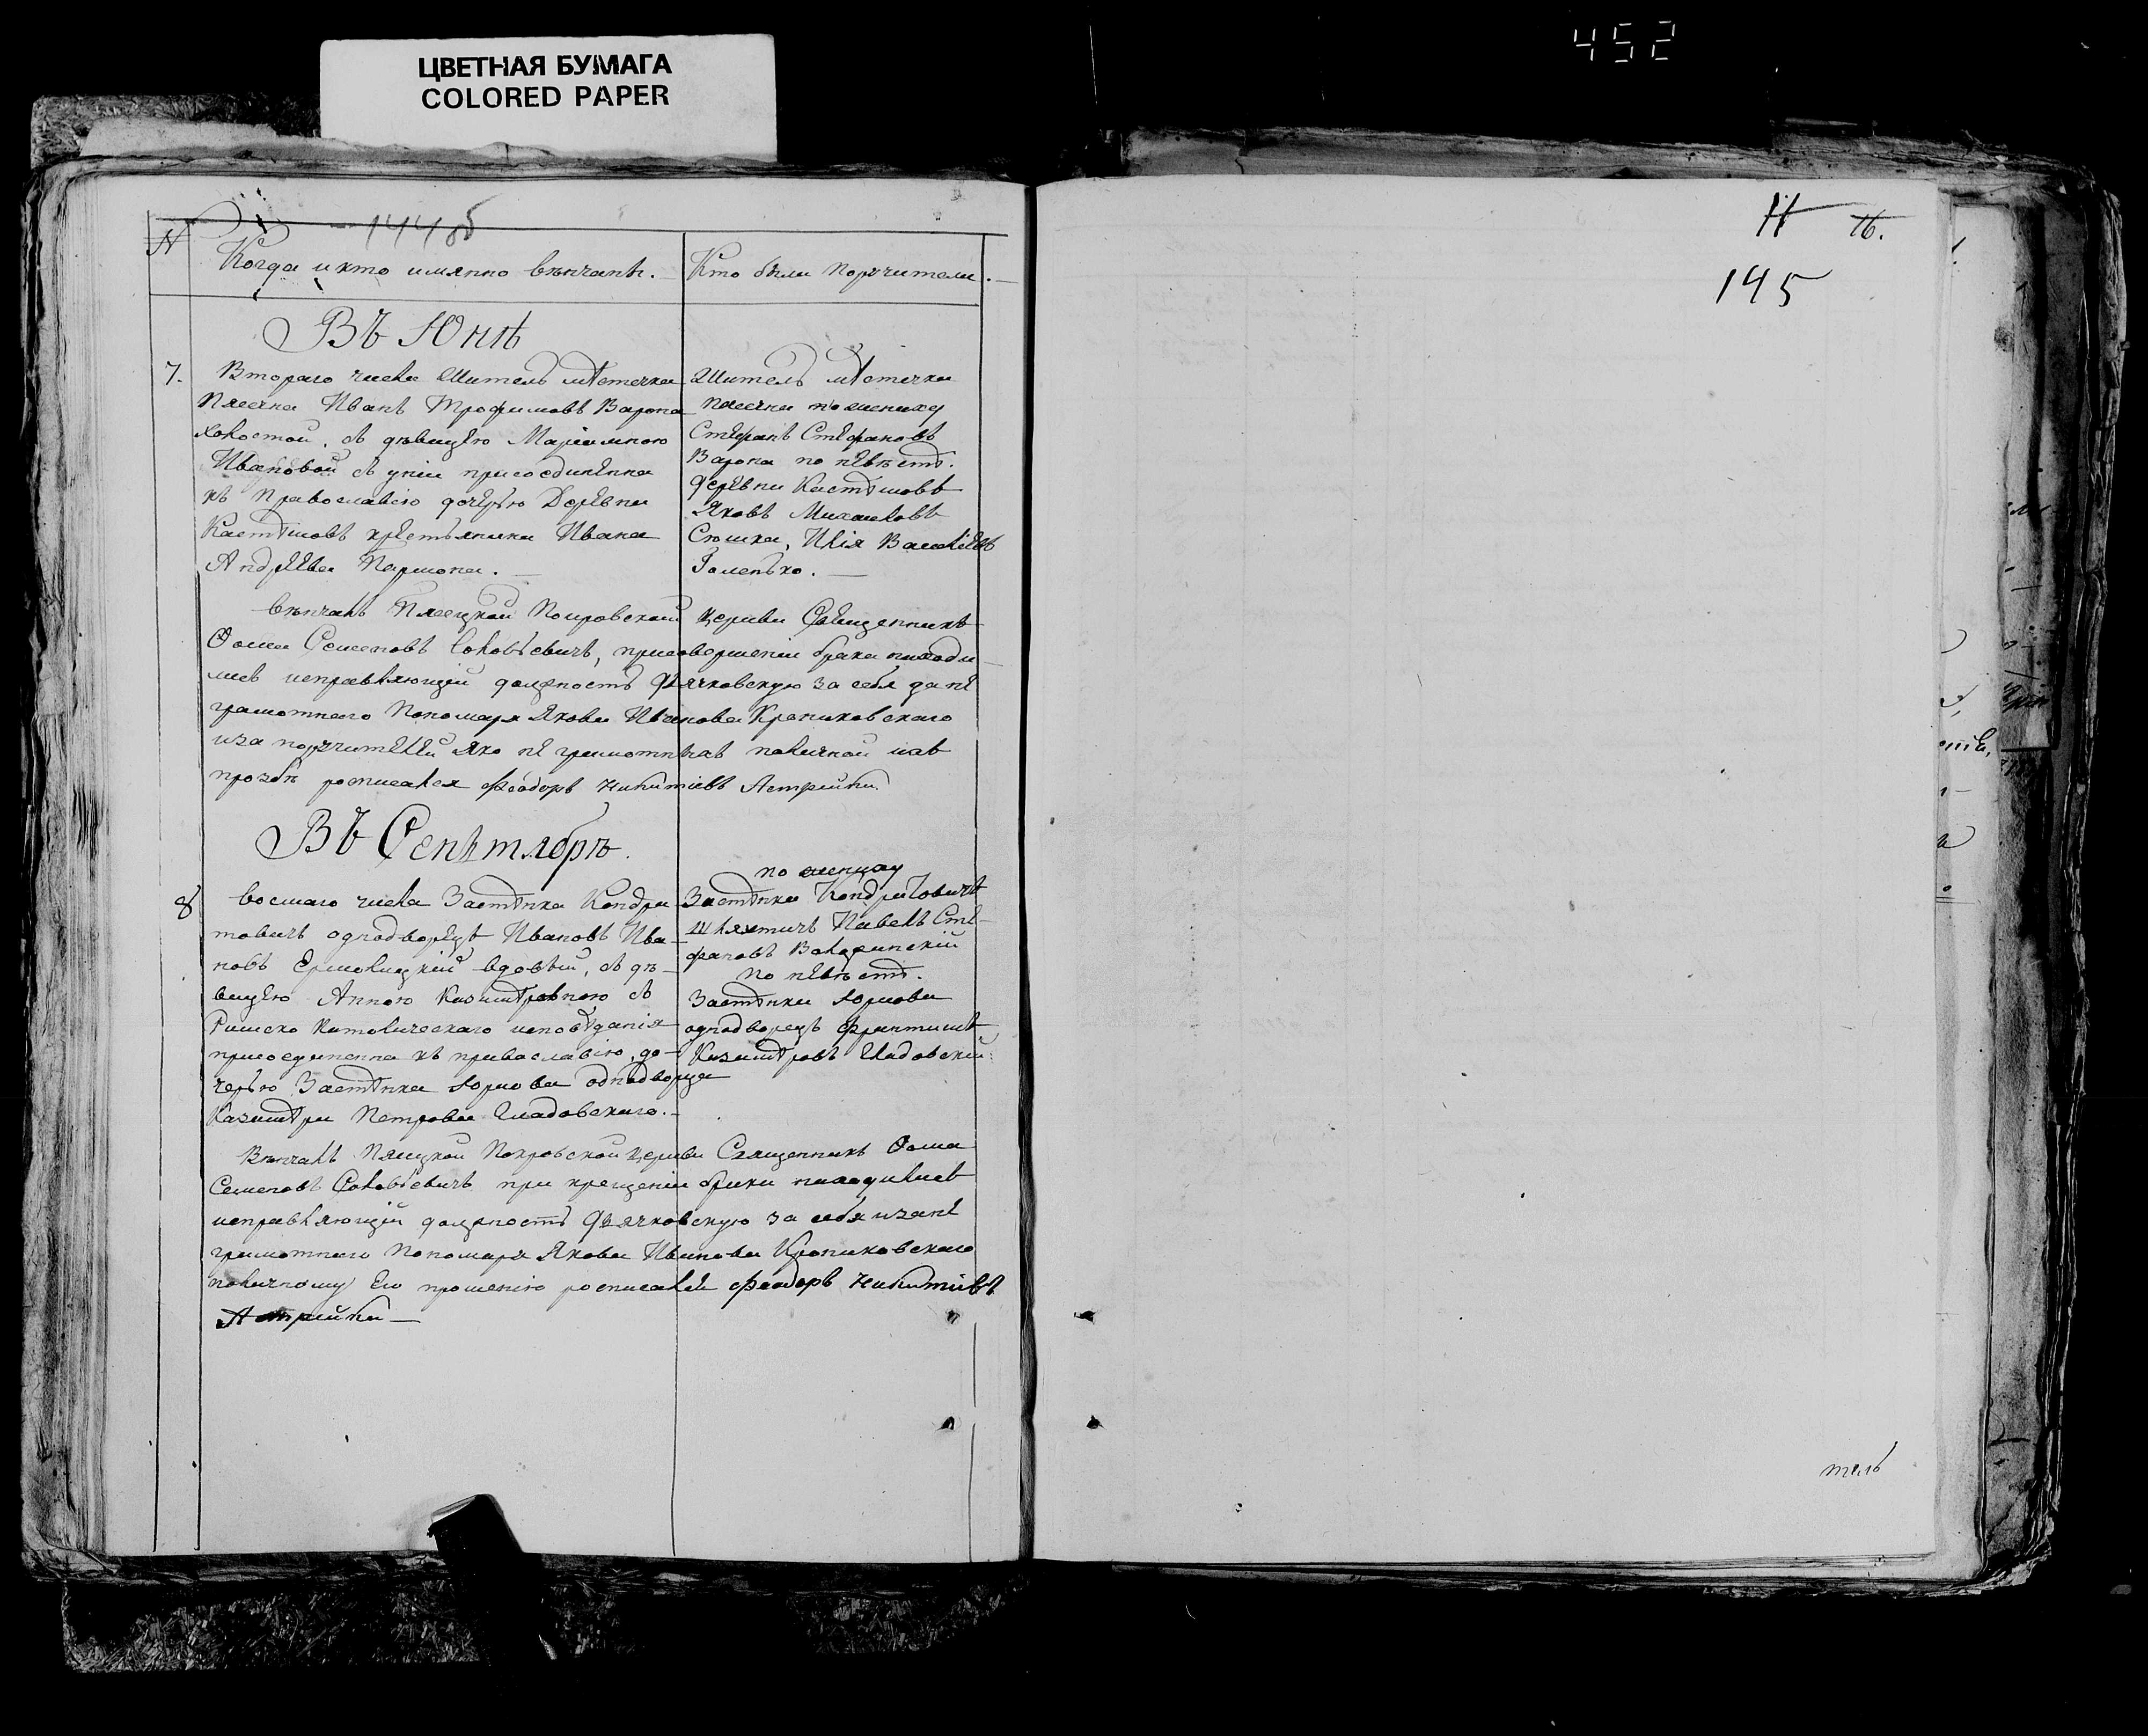 ЦВЕТНАЯ БУМАГА
COLORED PAPER
452
144 об
N
Когда и кто имянно вѣнчанъ.
Кто были поручители.
Въ Юнѣ
7.
Втораго числа Житель мѣстечка
Пясечна Иванъ Трофимовъ Варопа
холостой, съ дѣвицею Маріамною
Ивановой съ уніи присоединенна
къ православію дочерью Деревни
крестьянина Ивана
Андреева Пармона.
Житель мѣстечка
по жениху
Стефанъ Стефановъ
Варопа по невѣстѣ.
деревни
Яковъ Михаиловъ
Сюшка, Илія Василіевъ
Галенько.
Вѣнчалъ Пясецкой Покровской церкви Священникъ
Ѳома Семеновъ Соловіевичъ, при совершеніи брака находи
исправляющій должность Дьячковскую за себя да не
грамотнаго Пономаря Якова Иванова
и за поручителей яко не грамотныхъ по личной ихъ
прозбѣ росписался Феодоръ Никитіевъ
Въ Сенътябрѣ.
8
Восмаго числа Застѣнка Кондра
товичъ однодворецъ Ивановъ Ива
новъ Ермолицкій вдовый, съ дѣ
вицею Анною Казиміровною съ
Римско Католическаго исповѣданія
присоединенна къ православію, до
черью Застѣнка Юрова однодворца
Казиміра Петрова Гладовскаго.
по жениху
Застѣнка Кондратовичъ
Шляхтичъ Павелъ Сте
фановъ
по невѣстѣ.
Застѣнка Юрова
однодворецъ Францишкъ
Казиміровъ Гладовскій
Вѣнчалъ Пясецкой Покровской церкви Священникъ Ѳома
Семеновъ Соловіевичъ при крещеніи брака находился
исправляющій должность Дьячковскую за себя и за не
грамотнаго Пономаря Якова Иванова
по личному Его прошенію росписался Феодоръ Никитіевъ
16.
145
тель